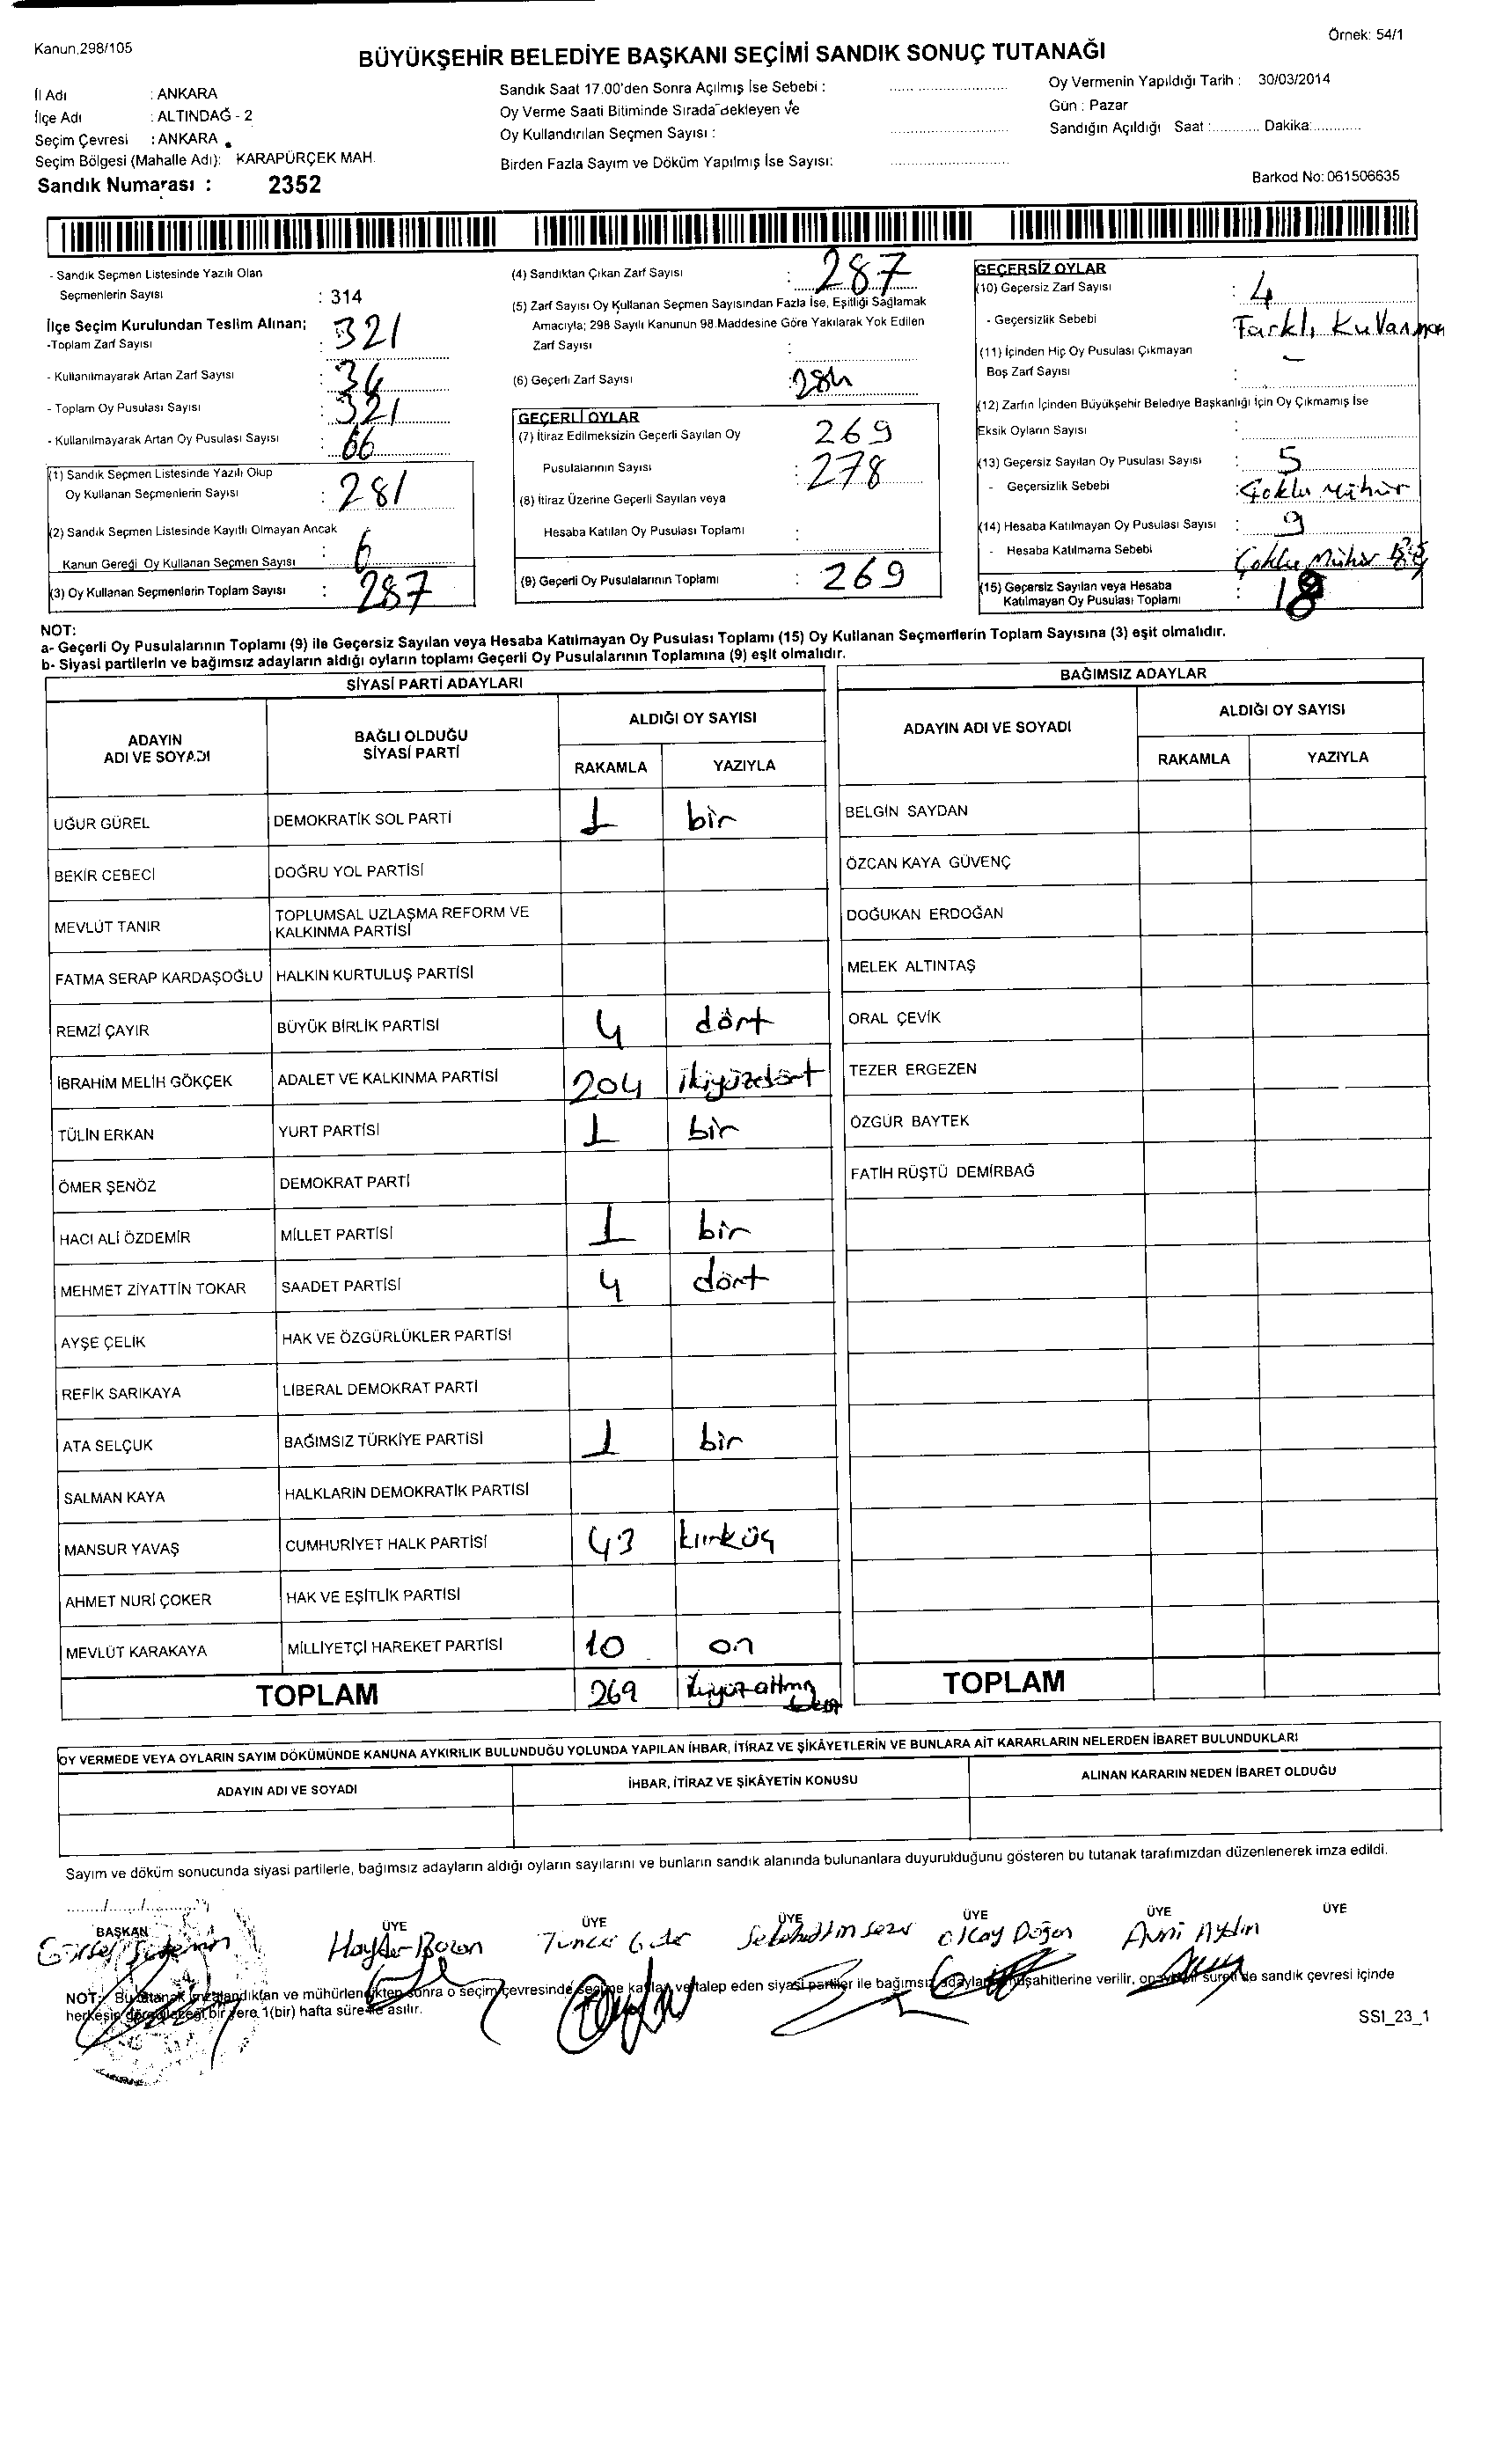 Kanun.298/105
Örnek: 54/1
BÜYÜKŞEHİR BELEDİYE BAŞKANI SEÇİMİ SANDIK SONUÇ TUTANAĞI
İl Adı : ANKARA
İlçe Adı : ALTINDAĞ - 2
Seçim Çevresi : ANKARA
Seçim Bölgesi (Mahalle Adı): KARAPÜRÇEK MAH.
Sandık Numarası : 2352
Sandık Saat 17.00'den Sonra Açılmış İse Sebebi :
Oy Verme Saati Bitiminde Sırada bekleyen ve
Oy Kullandırılan Seçmen Sayısı :
Birden Fazla Sayım ve Döküm Yapılmış İse Sayısı:
Oy Vermenin Yapıldığı Tarih : 30/03/2014
Gün : Pazar
Sandığın Açıldığı Saat :............ Dakika:............
Barkod No: 061506635
- Sandık Seçmen Listesinde Yazılı Olan
Seçmenlerin Sayısı : 314
İlçe Seçim Kurulundan Teslim Alınan;
-Toplam Zarf Sayısı : 321
- Kullanılmayarak Artan Zarf Sayısı : 34
- Toplam Oy Pusulası Sayısı : 321
- Kullanılmayarak Artan Oy Pusulası Sayısı : 66
(1) Sandık Seçmen Listesinde Yazılı Olup
Oy Kullanan Seçmenlerin Sayısı : 281
(2) Sandık Seçmen Listesinde Kayıtlı Olmayan Ancak
Kanun Gereği Oy Kullanan Seçmen Sayısı : 6
(3) Oy Kullanan Seçmenlerin Toplam Sayısı : 287
(4) Sandıktan Çıkan Zarf Sayısı : 287
(5) Zarf Sayısı Oy Kullanan Seçmen Sayısından Fazla İse, Eşitliği Sağlamak
Amacıyla; 298 Sayılı Kanunun 98.Maddesine Göre Yakılarak Yok Edilen
Zarf Sayısı :
(6) Geçerli Zarf Sayısı : 284
GEÇERLİ OYLAR
(7) İtiraz Edilmeksizin Geçerli Sayılan Oy 269
Pusulalarının Sayısı : 278
(8) İtiraz Üzerine Geçerli Sayılan veya
Hesaba Katılan Oy Pusulası Toplamı :
(9) Geçerli Oy Pusulalarının Toplamı : 269
GEÇERSİZ OYLAR
(10) Geçersiz Zarf Sayısı : 4
- Geçersizlik Sebebi : Farklı
(11) İçinden Hiç Oy Pusulası Çıkmayan –
Boş Zarf Sayısı :
(12) Zarfın İçinden Büyükşehir Belediye Başkanlığı İçin Oy Çıkmamış İse
Eksik Oyların Sayısı :
(13) Geçersiz Sayılan Oy Pusulası Sayısı : 5
- Geçersizlik Sebebi : Çoklu Mühür
(14) Hesaba Katılmayan Oy Pusulası Sayısı : 9
- Hesaba Katılmama Sebebi Çoklu Mühür
(15) Geçersiz Sayılan veya Hesaba
Katılmayan Oy Pusulası Toplamı : 18
NOT:
a- Geçerli Oy Pusulalarının Toplamı (9) ile Geçersiz Sayılan veya Hesaba Katılmayan Oy Pusulası Toplamı (15) Oy Kullanan Seçmenlerin Toplam Sayısına (3) eşit olmalıdır.
b- Siyasi partilerin ve bağımsız adayların aldığı oyların toplamı Geçerli Oy Pusulalarının Toplamına (9) eşit olmalıdır.
SİYASİ PARTİ ADAYLARI
ADAYIN ADI VE SOYADI BAĞLI OLDUĞU SİYASİ PARTİ ALDIĞI OY SAYISI
RAKAMLA YAZIYLA
UĞUR GÜREL DEMOKRATİK SOL PARTİ 1 bir
BEKİR CEBECİ DOĞRU YOL PARTİSİ
MEVLÜT TANIR TOPLUMSAL UZLAŞMA REFORM VE
KALKINMA PARTİSİ
FATMA SERAP KARDAŞOĞLU HALKIN KURTULUŞ PARTİSİ
REMZİ ÇAYIR BÜYÜK BİRLİK PARTİSİ 4 dört
İBRAHİM MELİH GÖKÇEK ADALET VE KALKINMA PARTİSİ 204 ikiyüzdört
TÜLİN ERKAN YURT PARTİSİ 1 bir
ÖMER ŞENÖZ DEMOKRAT PARTİ
HACI ALİ ÖZDEMİR MİLLET PARTİSİ 1 bir
MEHMET ZİYATTİN TOKAR SAADET PARTİSİ 4 dört
AYŞE ÇELİK HAK VE ÖZGÜRLÜKLER PARTİSİ
REFİK SARIKAYA LİBERAL DEMOKRAT PARTİ
ATA SELÇUK BAĞIMSIZ TÜRKİYE PARTİSİ 1 bir
SALMAN KAYA HALKLARIN DEMOKRATİK PARTİSİ
MANSUR YAVAŞ CUMHURİYET HALK PARTİSİ 43 kırküç
AHMET NURİ ÇOKER HAK VE EŞİTLİK PARTİSİ
MEVLÜT KARAKAYA MİLLİYETÇİ HAREKET PARTİSİ 10 on
TOPLAM 269
BAĞIMSIZ ADAYLAR
ADAYIN ADI VE SOYADI ALDIĞI OY SAYISI
RAKAMLA YAZIYLA
BELGİN SAYDAN
ÖZCAN KAYA GÜVENÇ
DOĞUKAN ERDOĞAN
MELEK ALTINTAŞ
ORAL ÇEVİK
TEZER ERGEZEN
ÖZGÜR BAYTEK
FATİH RÜŞTÜ DEMİRBAĞ
TOPLAM
OY VERMEDE VEYA OYLARIN SAYIM DÖKÜMÜNDE KANUNA AYKIRILIK BULUNDUĞU YOLUNDA YAPILAN İHBAR, İTİRAZ VE ŞİKÂYETLERİN VE BUNLARA AİT KARARLARIN NELERDEN İBARET BULUNDUKLARI
ADAYIN ADI VE SOYADI İHBAR, İTİRAZ VE ŞİKÂYETİN KONUSU ALINAN KARARIN NEDEN İBARET OLDUĞU
Sayım ve döküm sonucunda siyasi partilerle, bağımsız adayların aldığı oyların sayılarını ve bunların sandık alanında bulunanlara duyurulduğunu gösteren bu tutanak tarafımızdan düzenlenerek imza edildi.
BAŞKAN ÜYE ÜYE ÜYE ÜYE ÜYE ÜYE
Haydar Bozan Olcay Doğan Avni Aydın
NOT: Bu tutanak imzalandıktan ve mühürlendikten sonra o seçim çevresinde seçime katılan ve talep eden siyasi partiler ile bağımsız adayların müşahitlerine verilir, onaylı bir sureti de sandık çevresi içinde
herkesin görebileceği bir yere 1(bir) hafta süre ile asılır.
SSI_23_1